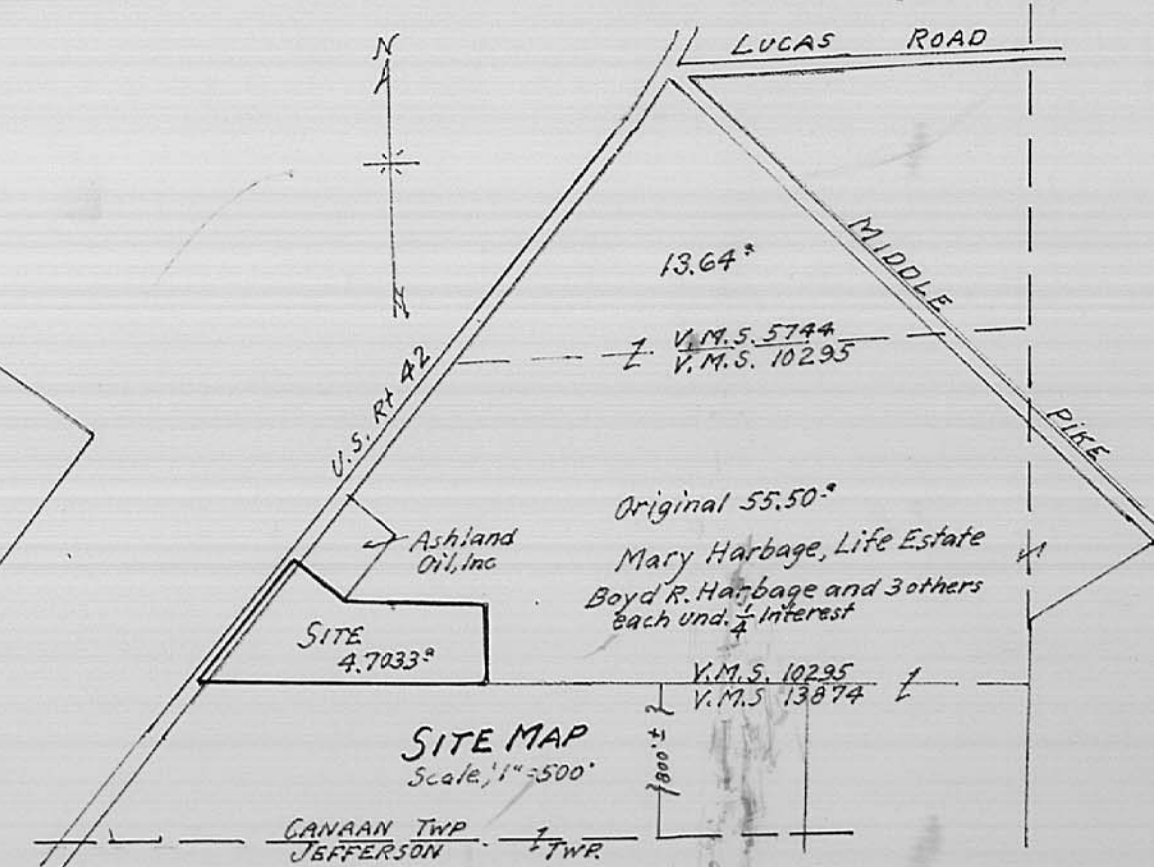 N
LUCAS ROAD
MIDDLE PIKE
13.64 a
V.M.S. 5744
V.M.S. 10295
U.S. Rt 42
Original 55.50 a
Mary Harbage, Life Estate
Boyd R. Harbage and 3 others
each und. 1/4 interest
Ashland
Oil, Inc
SITE
4.7033 a
V.M.S. 10295
V.M.S 13874
SITE MAP
Scale; 1"=500'
800'±
CANAAN TWP
JEFFERSON TWP.